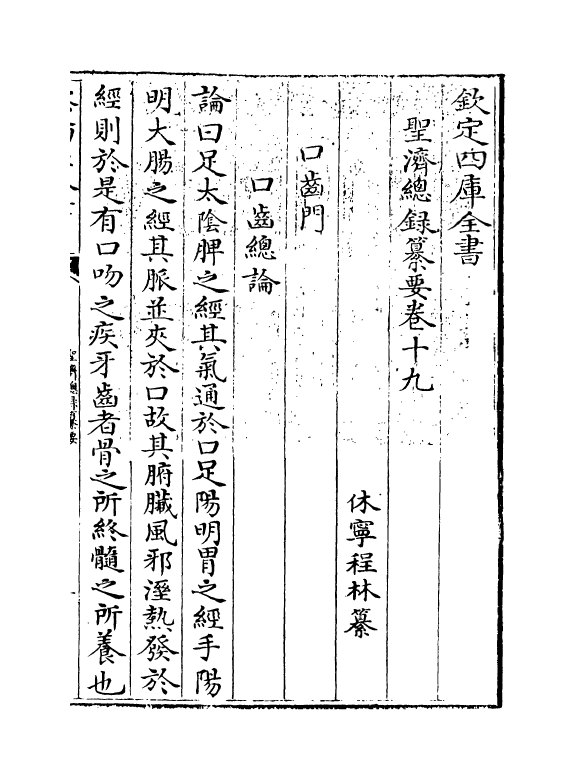 欽定四庫全書
聖濟總録纂要卷十九
休寧程林纂
口齒門
口齒總論
論曰足太陰脾之經其氣通於口足陽明胃之經手陽
明大腸之經其脈並夾於口故其腑臓風邪溼熱發於
經則於是有口吻之疾牙齒者骨之所終髓之所養也
聖濟總録纂要